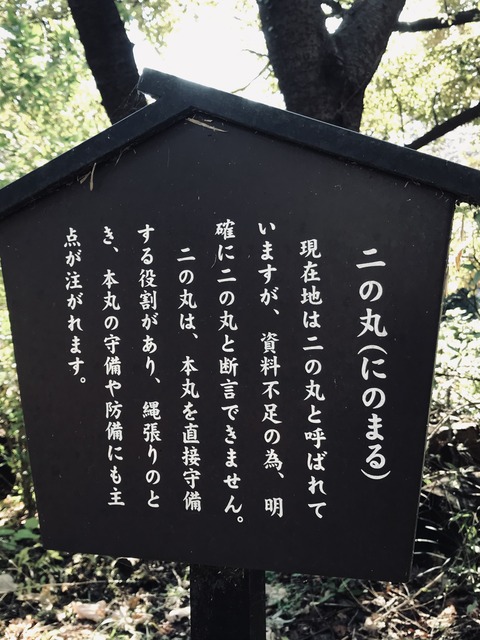 二の丸(にのまる)
現在地は二の丸と呼ばれて
いますが、資料不足の為、明
確に二の丸と断言できません。
二の丸は、本丸を直接守備
する役割があり、縄張りのと
き、本丸の守備や防備にも主
点が注がれます。